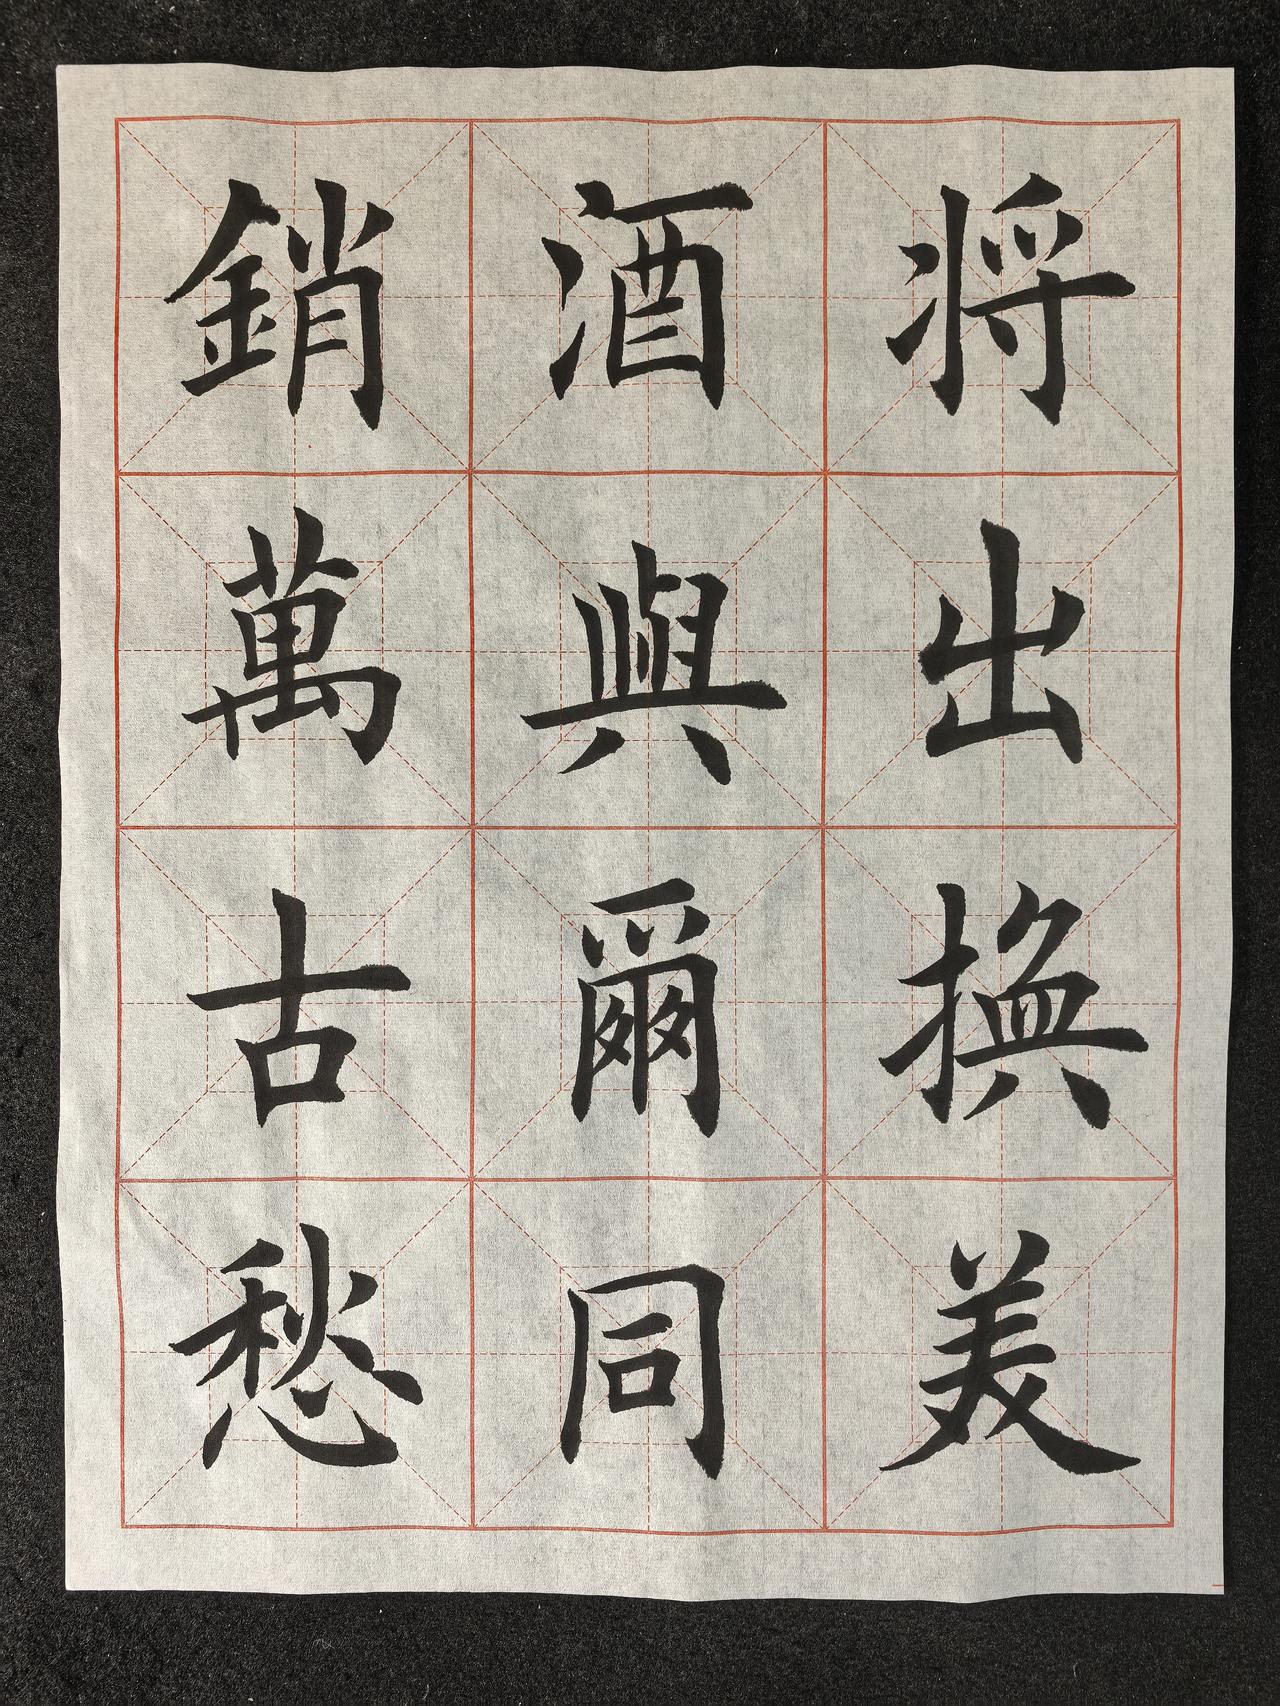 将出换美
酒與爾同
銷萬古愁